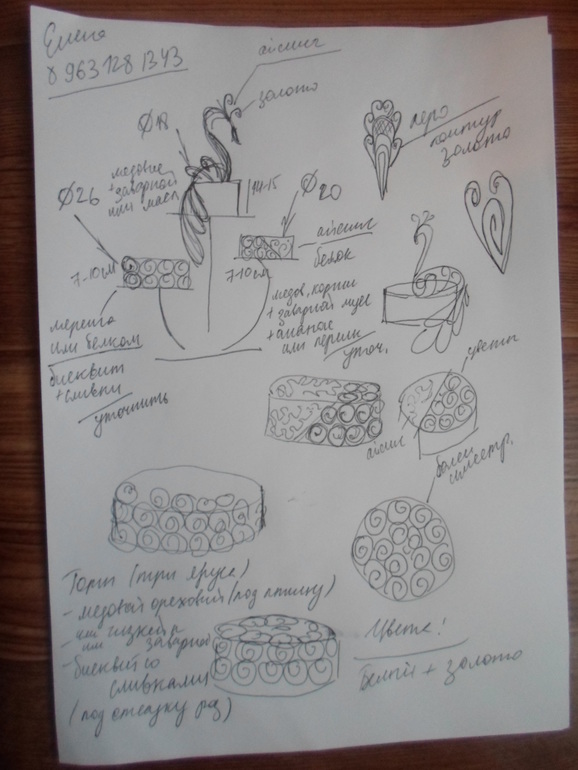 Елена
8 963 128 13 43
айсинг
золото
Ø18
медовые
+ заварной
или масл
14-15
перо
контур
золото
Ø26
Ø20
айсинг
белок
7-10см
7-10см
меренга
или белком
бисквит
+ сливки
уточнить
медов. коржи
+ заварной
+ ананас
или персик
уточ.
цветы
айсинг
более
симметр.
Торт (три яруса)
- медовый ореховый (под птицу)
или
или заварной
- бисквит со
сливками
(под отсадку роз)
Цвета!
белый + золото